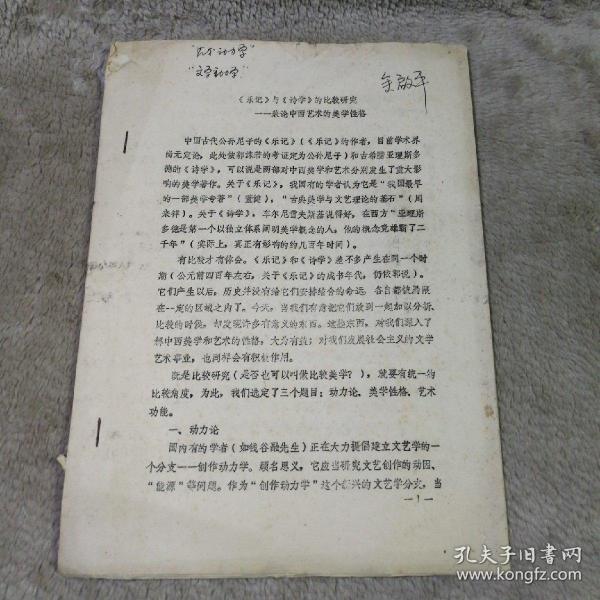 "文学动力学"
《乐记》与《诗学》的比较研究
——兼论中西艺术的美学性格
中国古代公孙尼子的《乐记》(《乐记》的作者,目前学术界
尚无定论,此处依郭沫若的考证定为公孙尼子)和古希腊亚理斯多
德的《诗学》,可以说是两部对中西美学和艺术分别发生了重大影
响的美学著作。关于《乐记》,我国有的学者认为它是"我国最早
的一部美学专著"(董健),"古典美学与文艺理论的基石"(周
来祥)。关于《诗学》,车尔尼雪夫斯基说得好,在西方"亚理斯
多德是第一个以独立体系阐明美学概念的人,他的概念竟雄霸了二
千年"(实际上,真正有影响的约几百年时间)。
有比较才有体会。《乐记》和《诗学》差不多产生在同一个时
期(公元前四百年左右,关于《乐记》的成书年代,仍依郭说)。
它们产生以后,历史并没有给它们安排结合的命运,各自都被局限
在一定的区域之内了。今天,当我们有意把它们放到一起加以分析、
比较的时候,却发现许多有意义的东西。这些东西,对我们深入了
解中西美学和艺术的性格,大为有益;对我们发展社会主义的文学
艺术事业,也同样会有积极作用。
既是比较研究(是否也可以叫做比较美学?),就要有统一的
比较角度,为此,我们选定了三个题目:动力论、美学性格、艺术
功能。
一、动力论
国内有的学者(如钱谷融先生)正在大力提倡建立文艺学的一
个分支——创作动力学。顾名思义,它应当研究文艺创作的动因、
"能源"等问题。作为"创作动力学"这个新兴的文艺学分支,当
—1—
孔夫子旧书网
www.kongfz.com